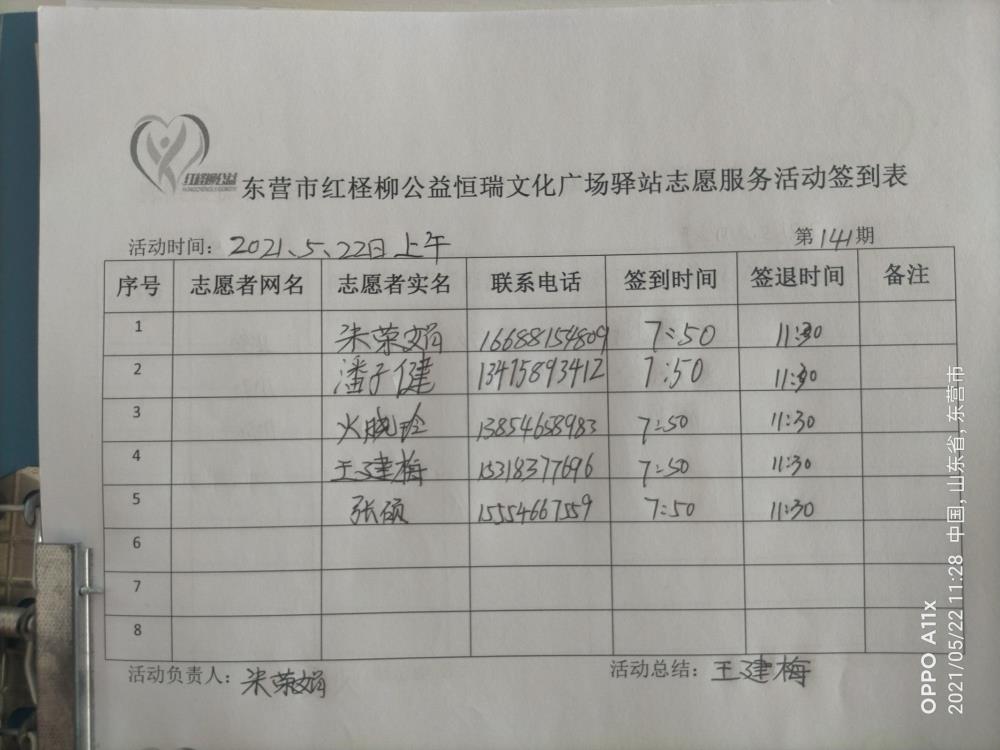 红柽柳公益
东营市红柽柳公益恒瑞文化广场驿站志愿服务活动签到表
活动时间：2021、5、22日上午 第141期
序号 志愿者网名 志愿者实名 联系电话 签到时间 签退时间 备注
1 米荣娟 16688154809 7:50 11:30
2 潘子健 13475893412 7:50 11:30
3 火晓玲 13854658983 7:50 11:30
4 王建梅 15318377696 7:50 11:30
5 张硕 15554667559 7:50 11:30
6
7
8
活动负责人：米荣娟 活动总结：王建梅
OPPO A11x
2021/05/22 11:28 中国, 山东省, 东营市